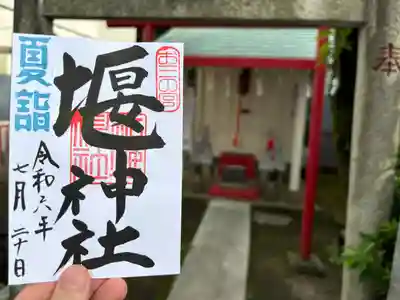 夏詣
堰神社
令和六年
七月二十日
奉